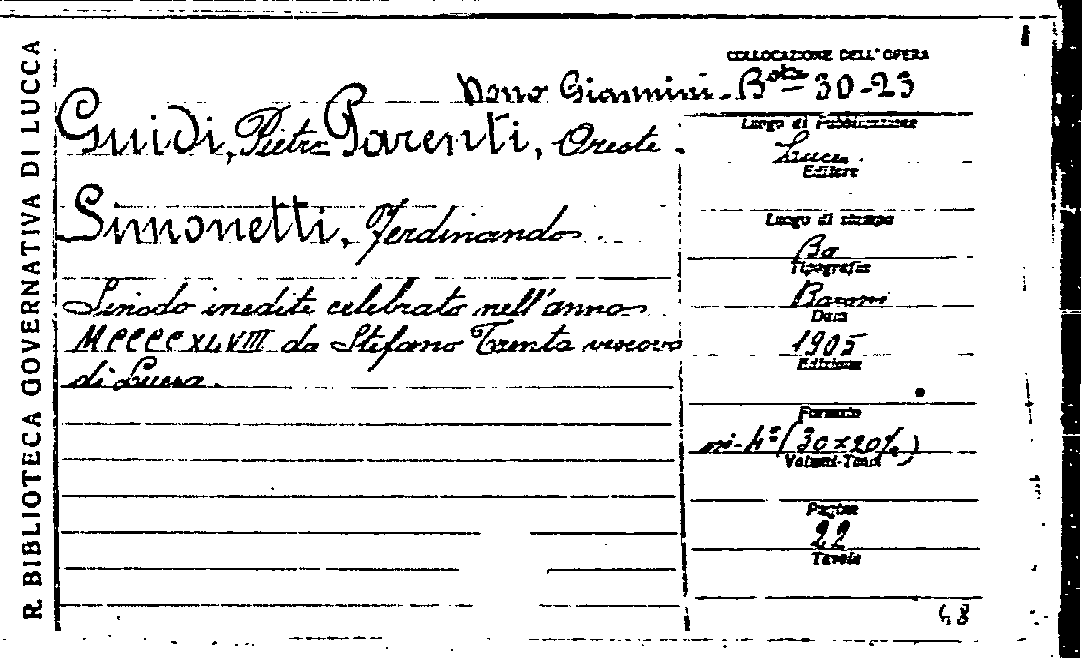 R. BIBLIOTECA GOVERNATIVA DI LUCCA
COLLOCAZIONE DELL'OPERA
Giannini - B - 30-23
Guidi, Pietro Parenti, Oreste.
Simonetti, Ferdinando.
Sinodo inedito celebrato nell'anno
MCCCCXLVIII da Stefano Trenta vescovo
di Lucca.
Luogo di Pubblicazione
Lucca.
Editore
Luogo di stampa
Tipografia
Baroni
Data
1905
Edizione
Formato
in-4º (30x20%)
Volumi-Tomi
Pagine
22
Tavole
48